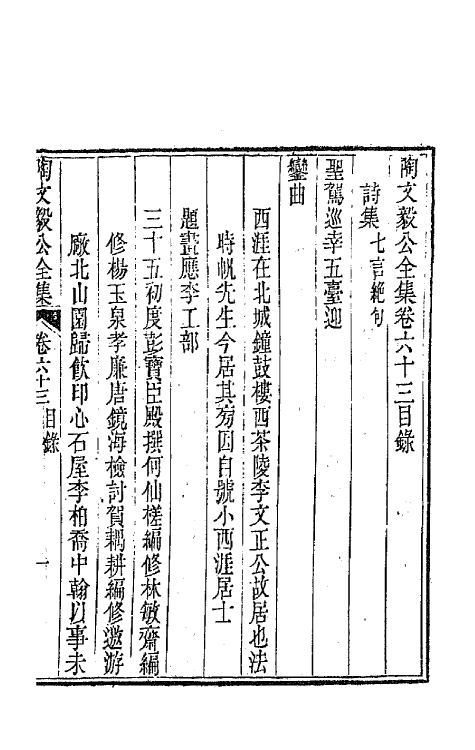 陶文毅公全集卷六十三目錄
詩集七言絕句
聖駕巡幸五臺迎
鑾曲
西涯在北城鐘鼓樓西茶陵李文正公故居也法
時帆先生今居其旁因自號小西涯居士
題畫應李工部
三十五初度彭寶臣殿撰何仙槎編修林敏齋編
修楊玉泉孝廉唐鏡海檢討賀耦耕編修邀游
廠北山園歸飲印心石屋李柏喬中翰以事未
陶文毅公全集 卷六十三目錄 一